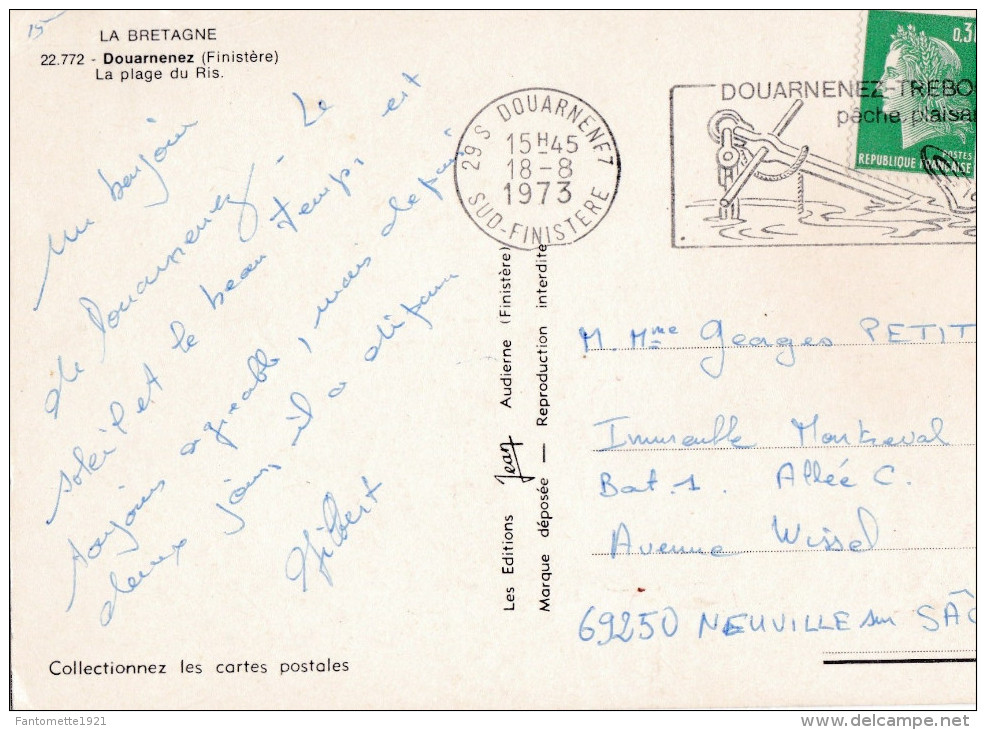 15
LA BRETAGNE
22.772 - Douarnenez (Finistère)
La plage du Ris.
Un bonjour
de Douarnenez. Le
soleil et le beau temps est
toujours agréable, mais depuis
deux jours il a disparu
Gilbert
Collectionnez les cartes postales
Les Editions Jean Audierne (Finistère)
Marque déposée — Reproduction interdite
29 S DOUARNENEZ
15 H 45
18-8
1973
SUD-FINISTERE
DOUARNENEZ-TREBO
pêche, plaisa
0,3
POSTES
REPUBLIQUE FRANÇAISE
M. Mme Georges PETIT
Immeuble Montseval
Bat. 1. Allée C.
Avenue Wissel
69250 NEUVILLE sur SÂO
Fantomette1921
delcampe.net